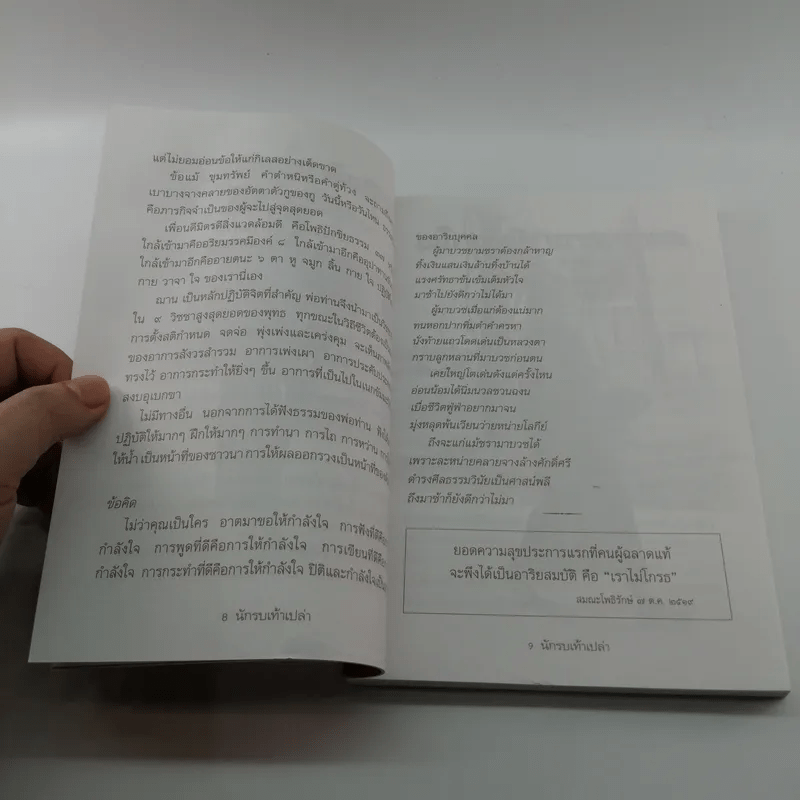 แต่ไม่ยอมอ่อนข้อให้แก่กิเลสอย่างเด็ดขาด
ข้อแม้ ขุมทรัพย์ คำตำหนิหรือคำดูท้วง
เบาบางจางคลายของอัตตาตัวกูของกู วันนี้หรือวันไหน
คือภารกิจจำเป็นของผู้จะไปสู่จุดสุดยอด
เพื่อนดีมิตรดีสิ่งแวดล้อมดี คือโพธิปักขิยธรรม ๓๗
ใกล้เข้ามาคืออริยมรรคมีองค์ ๘ ใกล้เข้ามาอีกคือ
ใกล้เข้ามาอีกคืออายตนะ ๖ ตา หู จมูก ลิ้น กาย ใจ
กาย วาจา ใจ ของเรานี่เอง
ฌาน เป็นหลักปฏิบัติจิตที่สำคัญ พ่อท่านจึงนำมาเป็น
ใน ๙ วิชชาสูงสุดยอดของพุทธ ทุกขณะในวิถีชีวิต
การตั้งสติกำหนด จดจ่อ พุ่งเพ่งและเคร่งคุม จะเห็น
ของอาการสังวรสำรวม อาการเพ่งเผา อาการประคับ
ทรงไว้ อาการกระทำให้ยิ่งๆ ขึ้น อาการที่เป็นไปใน
ลงบอุเบกขา
ไม่มีทางอื่น นอกจากการได้ฟังธรรมของพ่อท่าน
ปฏิบัติให้มากๆ ฝึกให้มากๆ การทำนา การไถ การหว่าน
ให้น้ำ เป็นหน้าที่ของชาวนา การให้ผลออกรวงเป็นหน้าที่ของ
ข้อคิด
ไม่ว่าคุณเป็นใคร อาตมาขอให้กำลังใจ การฟังที่ดีคือ
กำลังใจ การพูดที่ดีคือการให้กำลังใจ การเขียนที่ดีคือ
กำลังใจ การกระทำที่ดีคือการให้กำลังใจ ปีติและกำลังใจ
8 นักรบเท้าเปล่า
ของอาริยบุคคล
ผู้มาบวชยามชราต้องกล้าหาญ
ทิ้งเงินแสนเงินล้านทิ้งบ้านได้
แรงศรัทธาขันเข้มเติมหัวใจ
มาช้าไปยังดีกว่าไม่ได้มา
ผู้มาบวชเมื่อแก่ต้องแน่มาก
ทนหอกปากทิ่มตำคำครหา
นั่งท้ายแถวโดดเด่นเป็นหลวงตา
กราบลูกหลานที่มาบวชก่อนตน
เคยใหญ่โตเด่นดังแต่ครั้งไหน
อ่อนน้อมได้นิ่มนวลชวนฉงน
เบื่อชีวิตฟู่ฟ่าอยากมาจน
มุ่งหลุดพ้นเวียนว่ายหน่ายโลกีย์
ถึงจะแก่แม้ชรามาบวชได้
เพราะละหน่ายคลายจางล้างศักดิ์ศรี
ดำรงศีลธรรมวินัยเป็นศาสน์พลี
ถึงมาช้าก็ยังดีกว่าไม่มา
ยอดความสุขประการแรกที่คนผู้ฉลาดแท้
จะพึงได้เป็นอาริยสมบัติ คือ “เราไม่โกรธ”
สมณะโพธิรักษ์ ๗ ต.ค. ๒๕๑๙
9 นักรบเท้าเปล่า